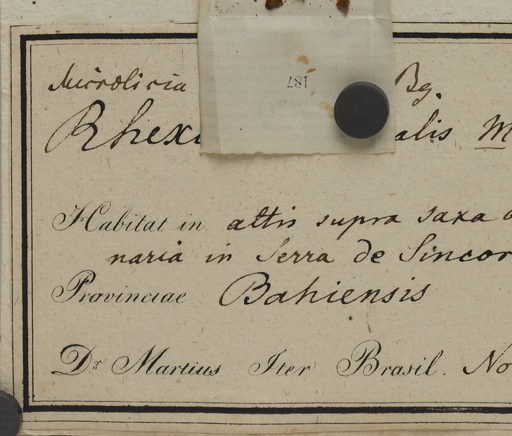 Microlicia Bg.
187
Rhexi alis M
Habitat in altis supra saxa a
naria in Serra de Sincor
Provinciae Bahiensis
Dr Martius Iter Brasil. No